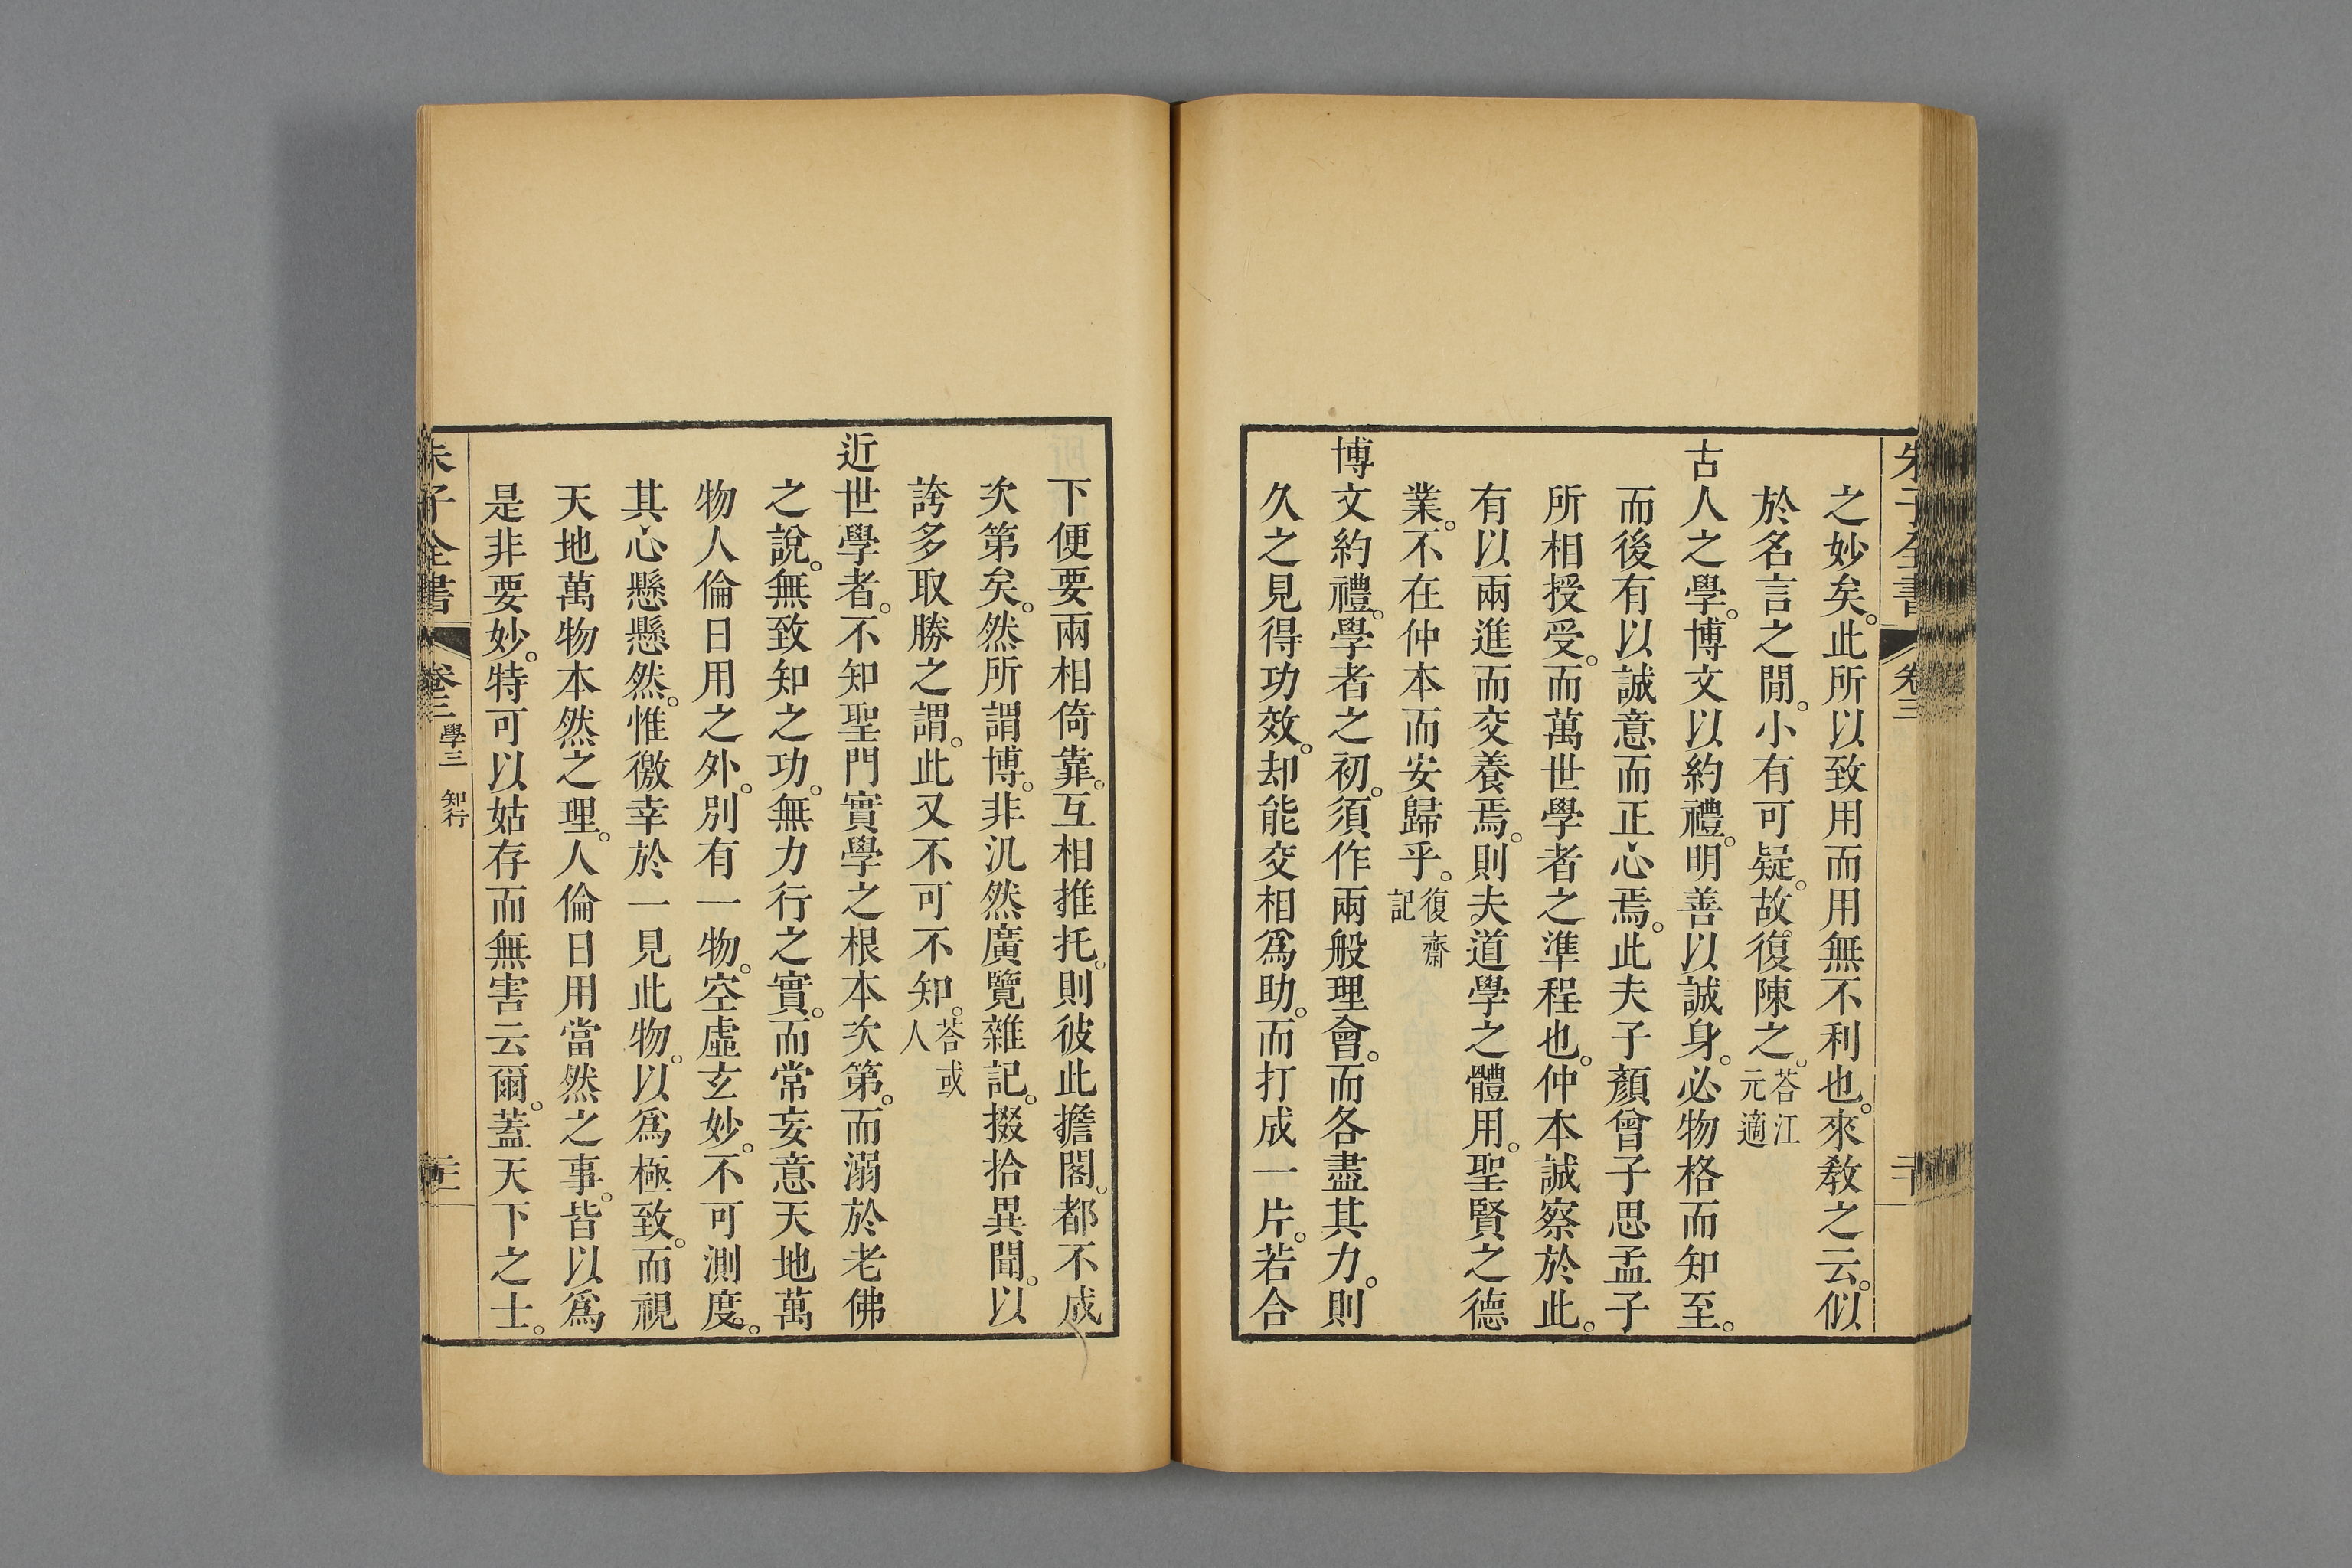 朱子全書 卷三
之妙矣。此所以致用而用無不利也。來教之云。似
於名言之閒。小有可疑。故復陳之。荅江元適
古人之學。博文以約禮。明善以誠身。必物格而知至。
而後有以誠意而正心焉。此夫子顏曾子思孟子
所相授受。而萬世學者之準程也。仲本誠察於此。
有以兩進而交養焉。則夫道學之體用。聖賢之德
業。不在仲本而安歸乎。復齋記
博文約禮。學者之初。須作兩般理會。而各盡其力。則
久之見得功效。却能交相爲助。而打成一片。若合
下便要兩相倚靠。互相推托。則彼此擔閣。都不成
次第矣。然所謂博。非汎然廣覽雜記。掇拾異聞。以
誇多取勝之謂。此又不可不知。荅或人
近世學者。不知聖門實學之根本次第。而溺於老佛
之說。無致知之功。無力行之實。而常妄意天地萬
物人倫日用之外。別有一物。空虛玄妙。不可測度。
其心懸懸然。惟徼幸於一見此物。以爲極致。而視
天地萬物本然之理。人倫日用當然之事。皆以爲
是非要妙。特可以姑存而無害云爾。蓋天下之士。
朱子全書 卷三 學三 知行